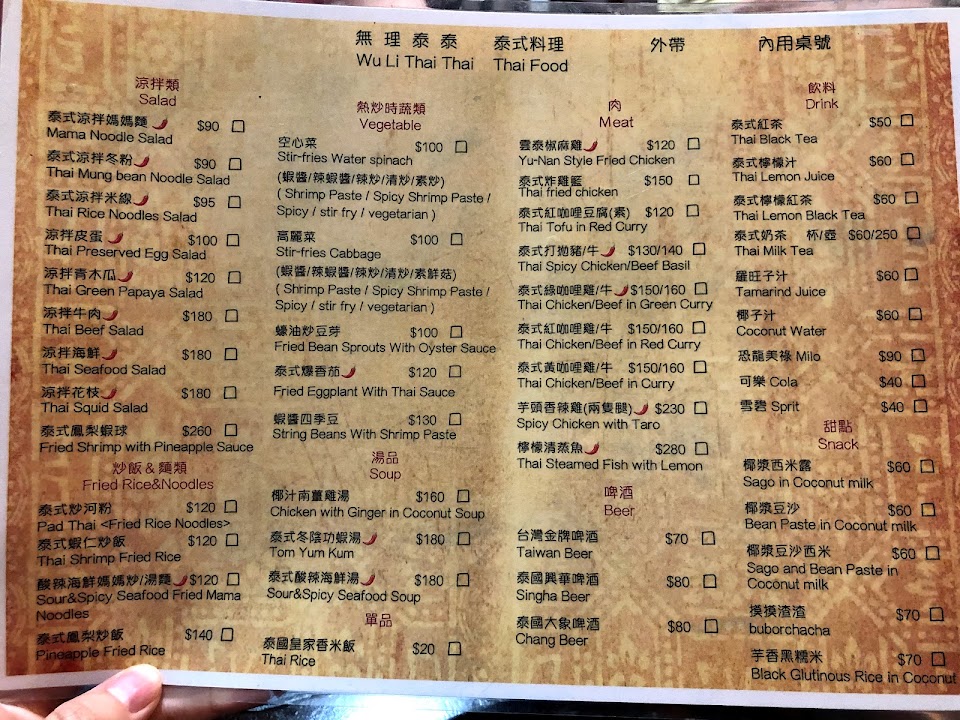 無理泰泰 泰式料理 外帶 內用桌號
Wu Li Thai Thai Thai Food
涼拌類
Salad
泰式涼拌媽媽麵 $90 □
Mama Noodle Salad
泰式涼拌冬粉 $90 □
Thai Mung bean Noodle Salad
泰式涼拌米線 $95 □
Thai Rice Noodles Salad
涼拌皮蛋 $100 □
Thai Preserved Egg Salad
涼拌青木瓜 $120 □
Thai Green Papaya Salad
涼拌牛肉 $180 □
Thai Beef Salad
涼拌海鮮 $180 □
Thai Seafood Salad
涼拌花枝 $180 □
Thai Squid Salad
泰式鳳梨蝦球 $260 □
Fried Shrimp with Pineapple Sauce
炒飯&麵類
Fried Rice&Noodles
泰式炒河粉 $120 □
Pad Thai <Fried Rice Noodles>
泰式蝦仁炒飯 $120 □
Thai Shrimp Fried Rice
酸辣海鮮媽媽炒/湯麵 $120 □
Sour&Spicy Seafood Fried Mama
Noodles
泰式鳳梨炒飯 $140 □
Pineapple Fried Rice
熱炒時蔬類
Vegetable
空心菜 $100 □
Stir-fries Water spinach
(蝦醬/辣蝦醬/辣炒/清炒/素炒)
( Shrimp Paste / Spicy Shrimp Paste /
Spicy / stir fry / vegetarian )
高麗菜 $100 □
Stir-fries Cabbage
(蝦醬/辣蝦醬/辣炒/清炒/素鮮菇)
( Shrimp Paste / Spicy Shrimp Paste /
Spicy / stir fry / vegetarian )
蠔油炒豆芽 $100 □
Fried Bean Sprouts With Oyster Sauce
泰式爆香茄 $120 □
Fried Eggplant With Thai Sauce
蝦醬四季豆 $130 □
String Beans With Shrimp Paste
湯品
Soup
椰汁南薑雞湯 $160 □
Chicken with Ginger in Coconut Soup
泰式冬陰功蝦湯 $180 □
Tom Yum Kum
泰式酸辣海鮮湯 $180 □
Sour&Spicy Seafood Soup
單品
泰國皇家香米飯 $20 □
Thai Rice
肉
Meat
雲泰椒麻雞 $120 □
Yu-Nan Style Fried Chicken
泰式炸雞籃 $150 □
Thai fried chicken
泰式紅咖哩豆腐(素) $120 □
Thai Tofu in Red Curry
泰式打拋豬/牛 $130/140 □
Thai Spicy Chicken/Beef Basil
泰式綠咖哩雞/牛 $150/160 □
Thai Chicken/Beef in Green Curry
泰式紅咖哩雞/牛 $150/160 □
Thai Chicken/Beef in Red Curry
泰式黃咖哩雞/牛 $150/160 □
Thai Chicken/Beef in Curry
芋頭香辣雞(兩隻腿) $230 □
Spicy Chicken with Taro
檸檬清蒸魚 $280 □
Thai Steamed Fish with Lemon
啤酒
Beer
台灣金牌啤酒 $70 □
Taiwan Beer
泰國興華啤酒 $80 □
Singha Beer
泰國大象啤酒 $80 □
Chang Beer
飲料
Drink
泰式紅茶 $50 □
Thai Black Tea
泰式檸檬汁 $60 □
Thai Lemon Juice
泰式檸檬紅茶 $60 □
Thai Lemon Black Tea
泰式奶茶 杯/壺 $60/250 □
Thai Milk Tea
羅旺子汁 $60 □
Tamarind Juice
椰子汁 $60 □
Coconut Water
恐龍美祿 Milo $90 □
可樂 Cola $40 □
雪碧 Sprit $40 □
甜點
Snack
椰漿西米露 $60 □
Sago in Coconut milk
椰漿豆沙 $60 □
Bean Paste in Coconut milk
椰漿豆沙西米 $60 □
Sago and Bean Paste in
Coconut milk
摸摸渣渣 $70 □
buborchacha
芋香黑糯米 $70 □
Black Glutinous Rice in Coconut